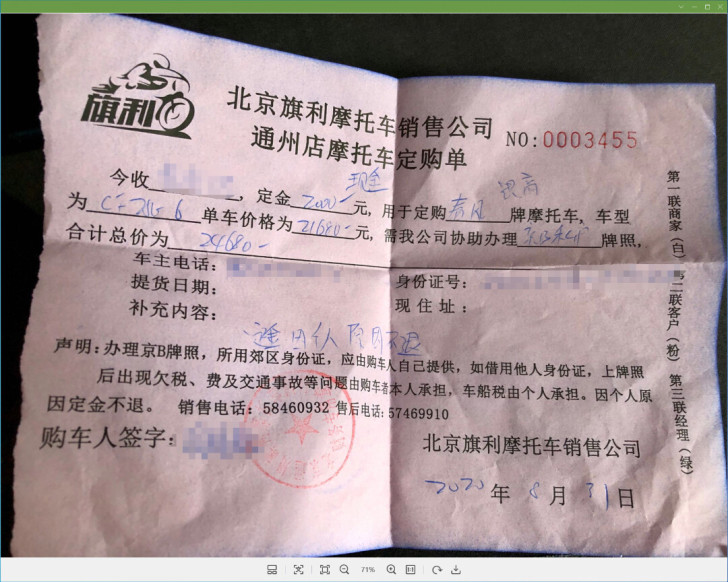 旗利
北京旗利摩托车销售公司
通州店摩托车定购单
NO:0003455
今收 , 定金 2000 元, 用于定购 春风 牌摩托车, 车型
为 单车价格为 21680- 元, 需我公司协助办理 牌照,
合计总价为 24680-
车主电话:
身份证号:
提货日期:
现住址:
补充内容:
声明: 办理京B牌照, 所用郊区身份证, 应由购车人自己提供, 如借用他人身份证, 上牌照
后出现欠税、费及交通事故等问题由购车者本人承担, 车船税由个人承担。因个人原
因定金不退。 销售电话: 58460932 售后电话: 57469910
购车人签字:
北京旗利摩托车销售公司
2020 年 8 月 31 日
第一联商家(白) 第二联客户(粉) 第三联经理(绿)
71%